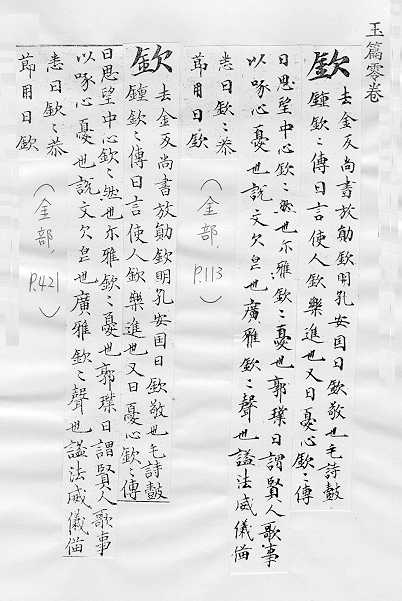 玉篇零卷
欽去金反尚書放勛欽明孔安国曰欽敬也毛詩鼓
鍾欽〻傳曰言使人欽樂進也又曰憂心欽〻傳
曰思望中心欽〻然也尔雅欽〻憂也郭璞曰謂賢人歌事
以啄心憂也說文欠皃也廣雅欽〻聲也謚法威儀俻
悉曰欽〻恭
莭用曰欽
(金部, P.113)
欽去金反尚書放勛欽明孔安国曰欽敬也毛詩鼓
鍾欽〻傳曰言使人欽樂進也又曰憂心欽〻傳
曰思望中心欽〻然也尔雅欽〻憂也郭璞曰謂賢人歌事
以啄心憂也說文欠皃也廣雅欽〻聲也謚法威儀俻
悉曰欽〻恭
莭用曰欽
(金部, P.421)